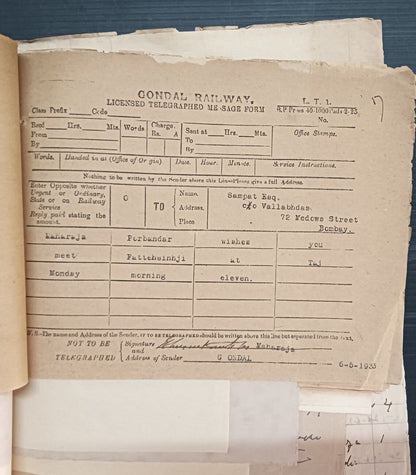 GONDAL RAILWAY.
L. T. 1.
LICENSED TELEGRAPHED MESSAGE FORM
Class Prefix Code
No.
Recd Hrs. Mts. Words Charge. Sent at Hrs. Mts. Office Stamps.
From Rs. A To
By By
Words. Handed in at (Office of Origin) Date. Hour. Minute. Service Instructions.
Nothing to be written by the Sender above this Line—Please give a full Address.
Enter Opposite whether
Urgent or Ordinary,
State or on Railway
Service
Reply paid stating the
amount.
O
TO
Name. Sampat Esq.
Address. c/o Vallabhdas.
Place 72 Medows Street
Bombay.
Maharaja Porbandar wishes you
meet Fattehsinhji at Taj
Monday morning eleven.
N. B.-The name and Address of the Sender, IF TO BE TELEGRAPHED should be written above this line but separated from the text.
NOT TO BE
TELEGRAPHED
Signature Maharaja
and
Address of Sender GONDAL
6-5-1933